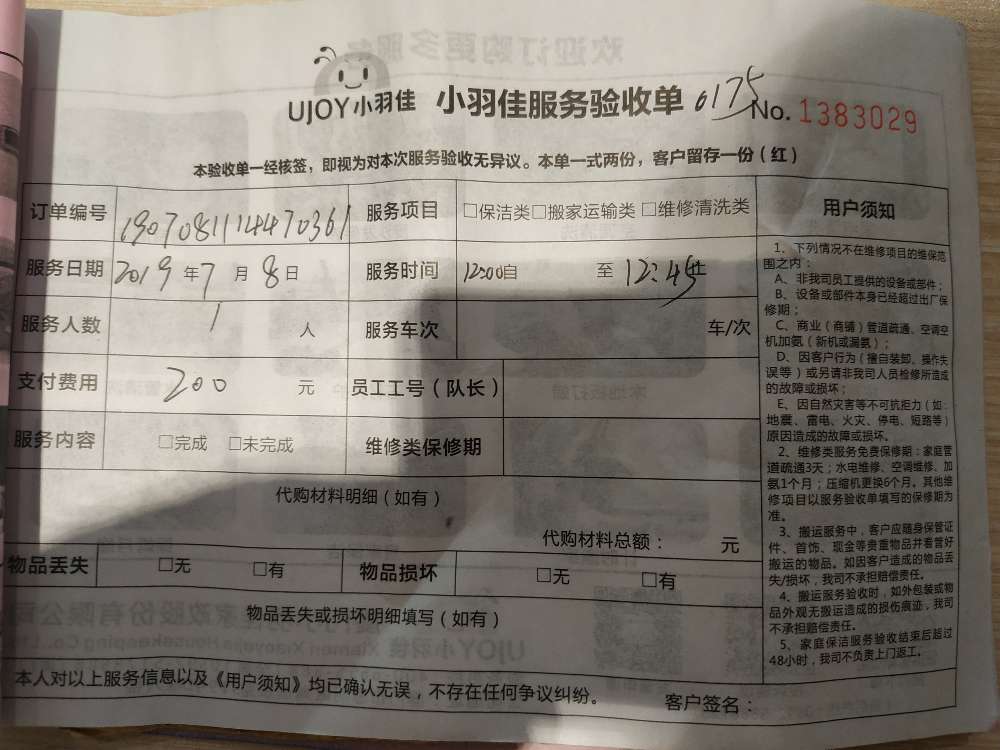 UJOY小羽佳 小羽佳服务验收单 6175 No. 1383029
本验收单一经核签，即视为对本次服务验收无异议。本单一式两份，客户留存一份（红）
订单编号 1907081114470361 服务项目 □保洁类□搬家运输类 □维修清洗类
服务日期 2019年7月8日 服务时间 12:00自 至 12:45止
服务人数 1 人 服务车次 车/次
支付费用 200 元 员工工号（队长）
服务内容 □完成 □未完成 维修类保修期
代购材料明细（如有）
代购材料总额： 元
物品丢失 □无 □有 物品损坏 □无 □有
物品丢失或损坏明细填写（如有）
本人对以上服务信息以及《用户须知》均已确认无误，不存在任何争议纠纷。 客户签名：
用户须知
1、下列情况不在维修项目的维保范
围之内：
A、非我司员工提供的设备或部件；
B、设备或部件本身已经超过出厂保
修期；
C、商业（商铺）管道疏通、空调空
机加氨（新机或漏氨）；
D、因客户行为（擅自装卸、操作失
误等）或另请非我司人员检修所造成
的故障或损坏；
E、因自然灾害等不可抗拒力（如：
地震、雷电、火灾、停电、短路等）
原因造成的故障或损坏。
2、维修类服务免费保修期：家庭管
道疏通3天；水电维修、空调维修、加
氨1个月；压缩机更换6个月。其他维
修项目以服务验收单填写的保修期为
准。
3、搬运服务中，客户应随身保管证
件、首饰、现金等贵重物品并看管好
搬运的物品。如因客户造成的物品丢
失/损坏，我司不承担赔偿责任。
4、搬运服务验收时，如外包装或物
品外观无搬运造成的损伤痕迹，我司
不承担赔偿责任。
5、家庭保洁服务验收结束后超过
48小时，我司不负责上门返工。